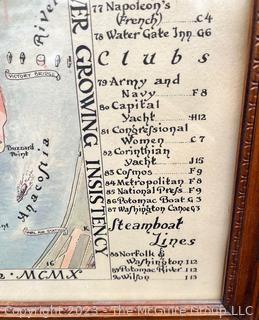 77 Napoleon's
(French) C4
78 Water Gate Inn G6
Clubs
79 Army and
Navy F8
80 Capital
Yacht H12
81 Congressional
Women C7
82 Corinthian
Yacht J15
83 Cosmos F9
84 Metropolitan F8
85 National Press F9
86 Potomac Boat G3
87 Washington Canoe G3
Steamboat
Lines
88 Norfolk &
Washington I12
89 Potomac River I12
90 Wilson I13
River
VICTORY BRIDGE
Buzzard
Point
Anacostia
ER GROWING INSISTENCY
MCMX
16
K
J
Copyright 2023 - The McGuire Group LLC